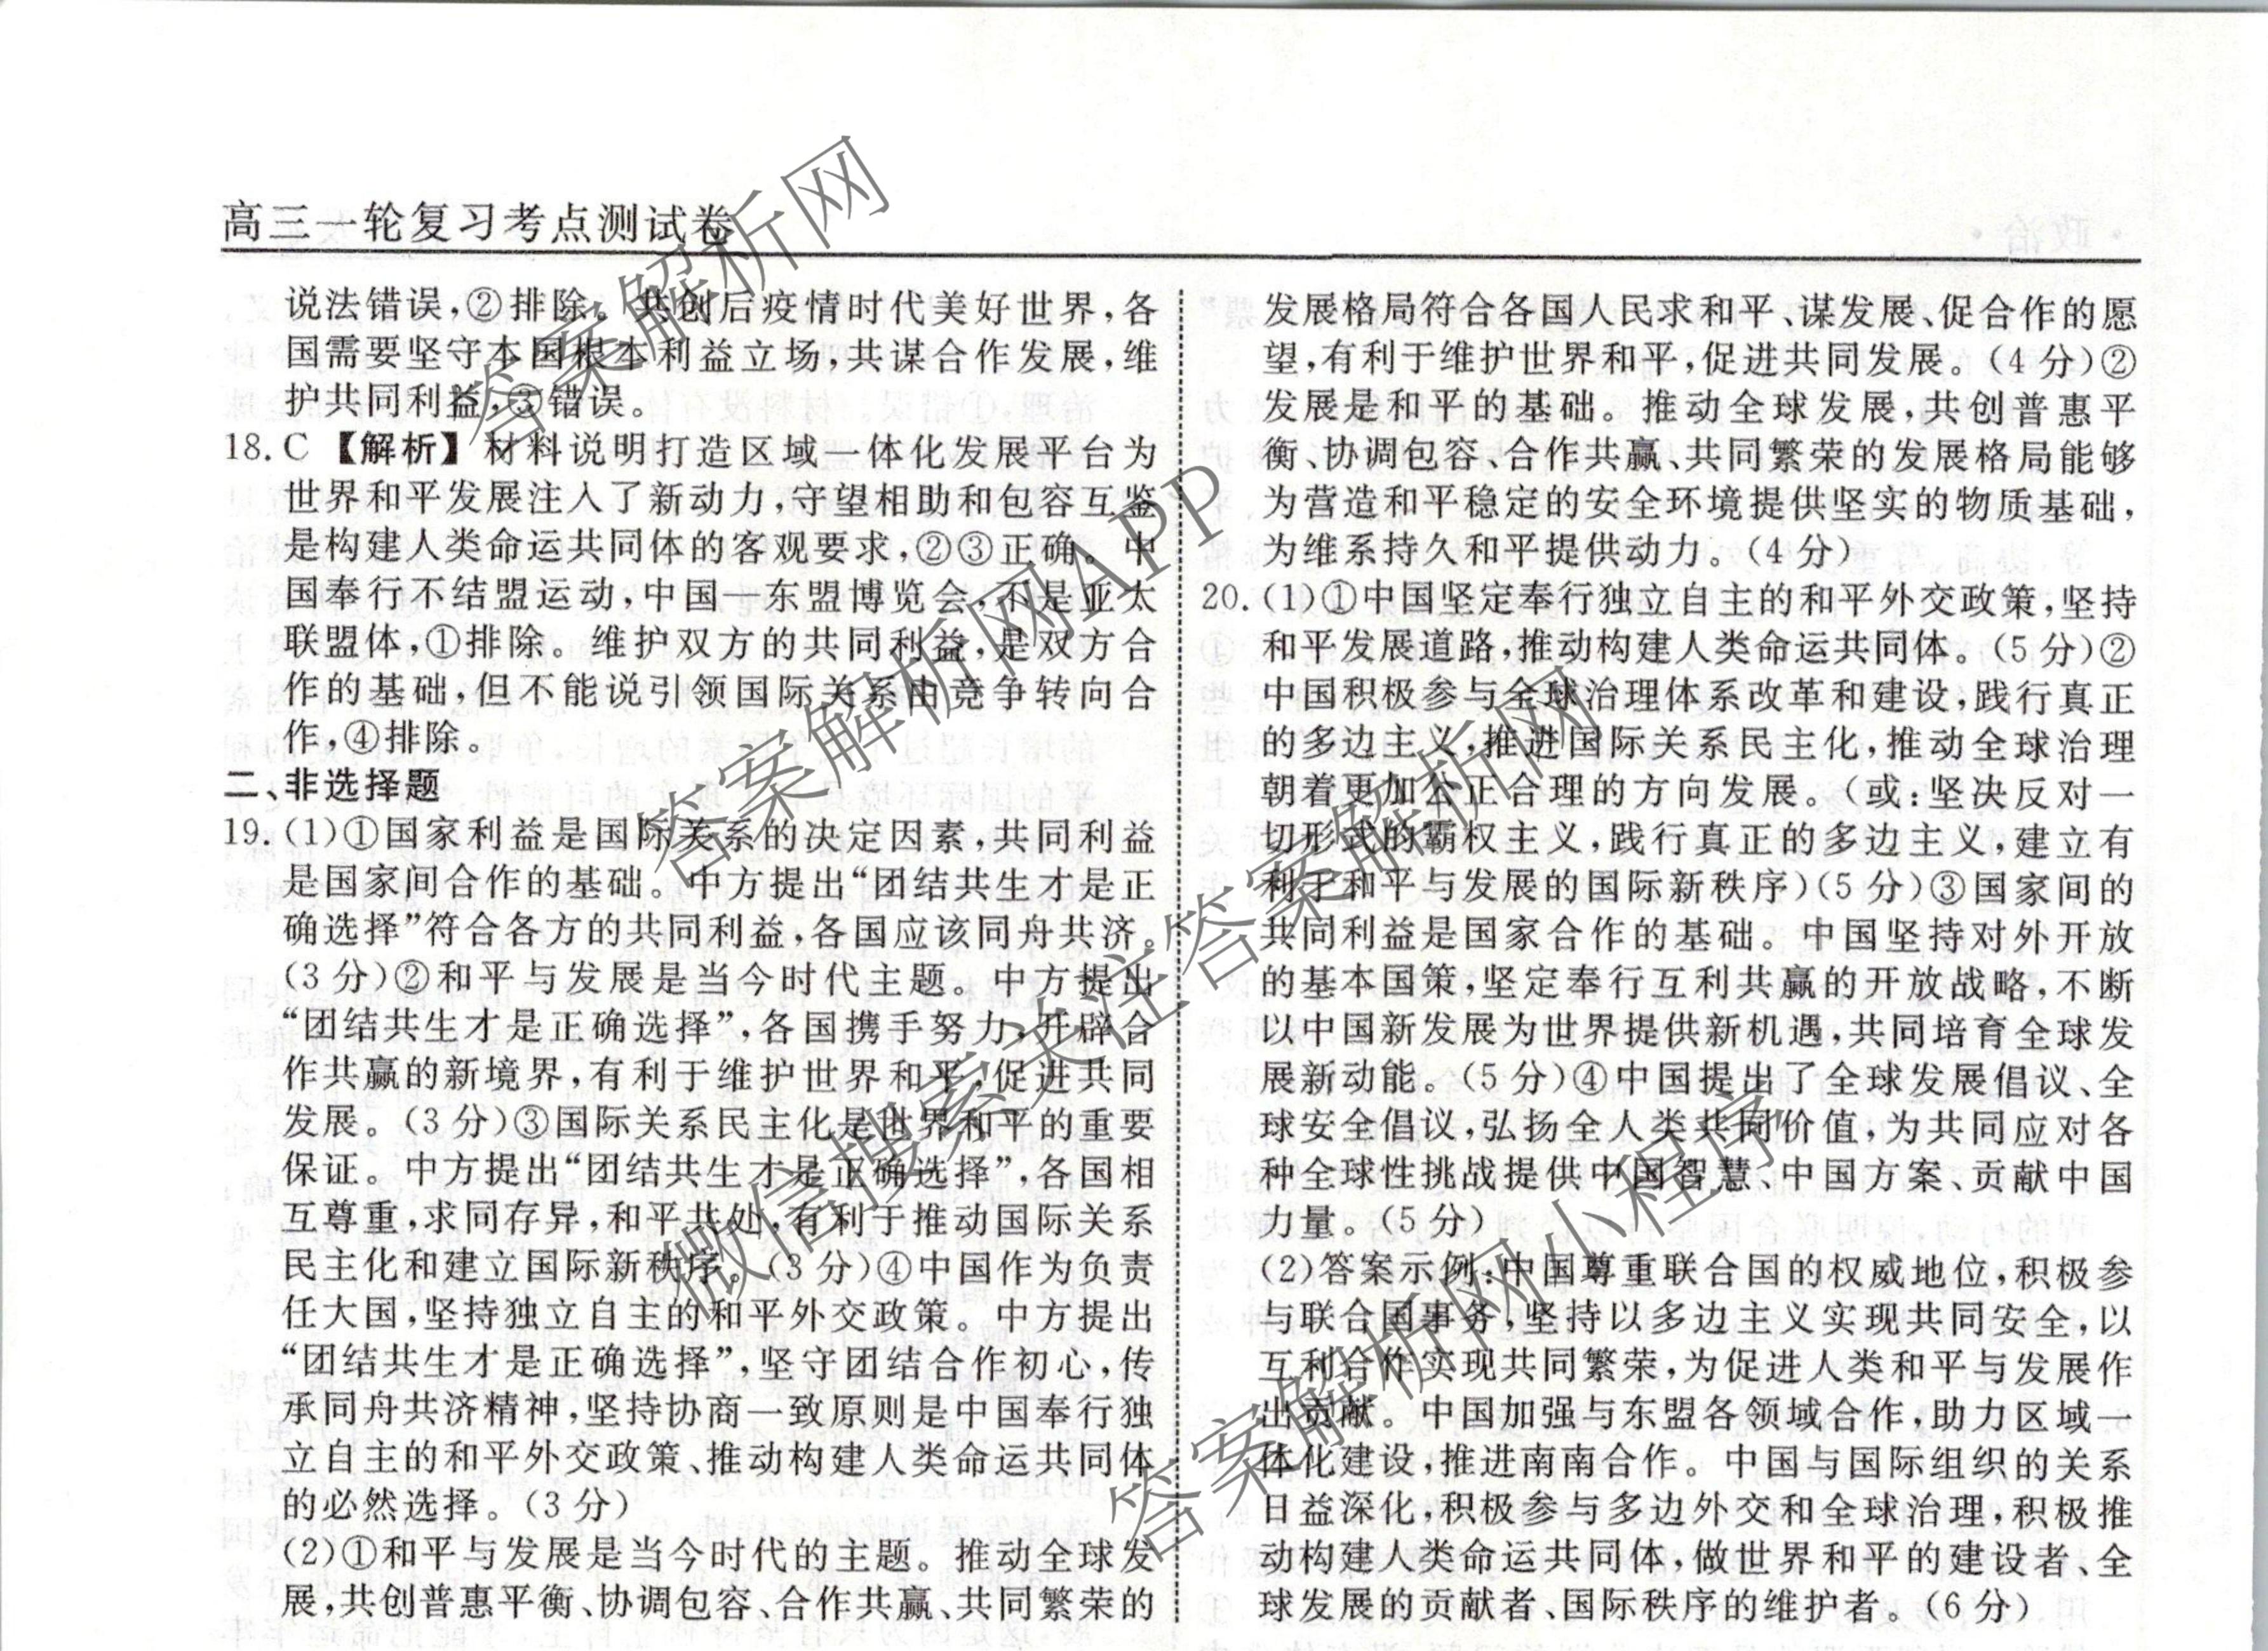 高三一轮复习考点测试卷
说法错误,②排除。共创后疫情时代美好世界,各
国需要坚守本国根本利益立场,共谋合作发展,维
护共同利益,③错误。
18.C 【解析】材料说明打造区域一体化发展平台为
世界和平发展注入了新动力,守望相助和包容互鉴
是构建人类命运共同体的客观要求,②③正确。中
国奉行不结盟运动,中国—东盟博览会,不是亚太
联盟体,①排除。维护双方的共同利益,是双方合
作的基础,但不能说引领国际关系由竞争转向合
作,④排除。
二、非选择题
19.(1)①国家利益是国际关系的决定因素,共同利益
是国家间合作的基础。中方提出“团结共生才是正
确选择”符合各方的共同利益,各国应该同舟共济。
(3分)②和平与发展是当今时代主题。中方提出
“团结共生才是正确选择”,各国携手努力,开辟合
作共赢的新境界,有利于维护世界和平,促进共同
发展。(3分)③国际关系民主化是世界和平的重要
保证。中方提出“团结共生才是正确选择”,各国相
互尊重,求同存异,和平共处,有利于推动国际关系
民主化和建立国际新秩序。(3分)④中国作为负责
任大国,坚持独立自主的和平外交政策。中方提出
“团结共生才是正确选择”,坚守团结合作初心,传
承同舟共济精神,坚持协商一致原则是中国奉行独
立自主的和平外交政策、推动构建人类命运共同体
的必然选择。(3分)
(2)①和平与发展是当今时代的主题。推动全球发
展,共创普惠平衡、协调包容、合作共赢、共同繁荣的
发展格局符合各国人民求和平、谋发展、促合作的愿
望,有利于维护世界和平,促进共同发展。(4分)②
发展是和平的基础。推动全球发展,共创普惠平
衡、协调包容、合作共赢、共同繁荣的发展格局能够
为营造和平稳定的安全环境提供坚实的物质基础,
为维系持久和平提供动力。(4分)
20.(1)①中国坚定奉行独立自主的和平外交政策,坚持
和平发展道路,推动构建人类命运共同体。(5分)②
中国积极参与全球治理体系改革和建设,践行真正
的多边主义,推进国际关系民主化,推动全球治理
朝着更加公正合理的方向发展。(或:坚决反对一
切形式的霸权主义,践行真正的多边主义,建立有
利于和平与发展的国际新秩序)(5分)③国家间的
共同利益是国家合作的基础。中国坚持对外开放
的基本国策,坚定奉行互利共赢的开放战略,不断
以中国新发展为世界提供新机遇,共同培育全球发
展新动能。(5分)④中国提出了全球发展倡议、全
球安全倡议,弘扬全人类共同价值,为共同应对各
种全球性挑战提供中国智慧、中国方案、贡献中国
力量。(5分)
(2)答案示例:中国尊重联合国的权威地位,积极参
与联合国事务,坚持以多边主义实现共同安全,以
互利合作实现共同繁荣,为促进人类和平与发展作
出贡献。中国加强与东盟各领域合作,助力区域一
体化建设,推进南南合作。中国与国际组织的关系
日益深化,积极参与多边外交和全球治理,积极推
动构建人类命运共同体,做世界和平的建设者、全
球发展的贡献者、国际秩序的维护者。(6分)
答案解析网
答案解析网APP
微信搜索关注答案解析网
答案解析网小程序